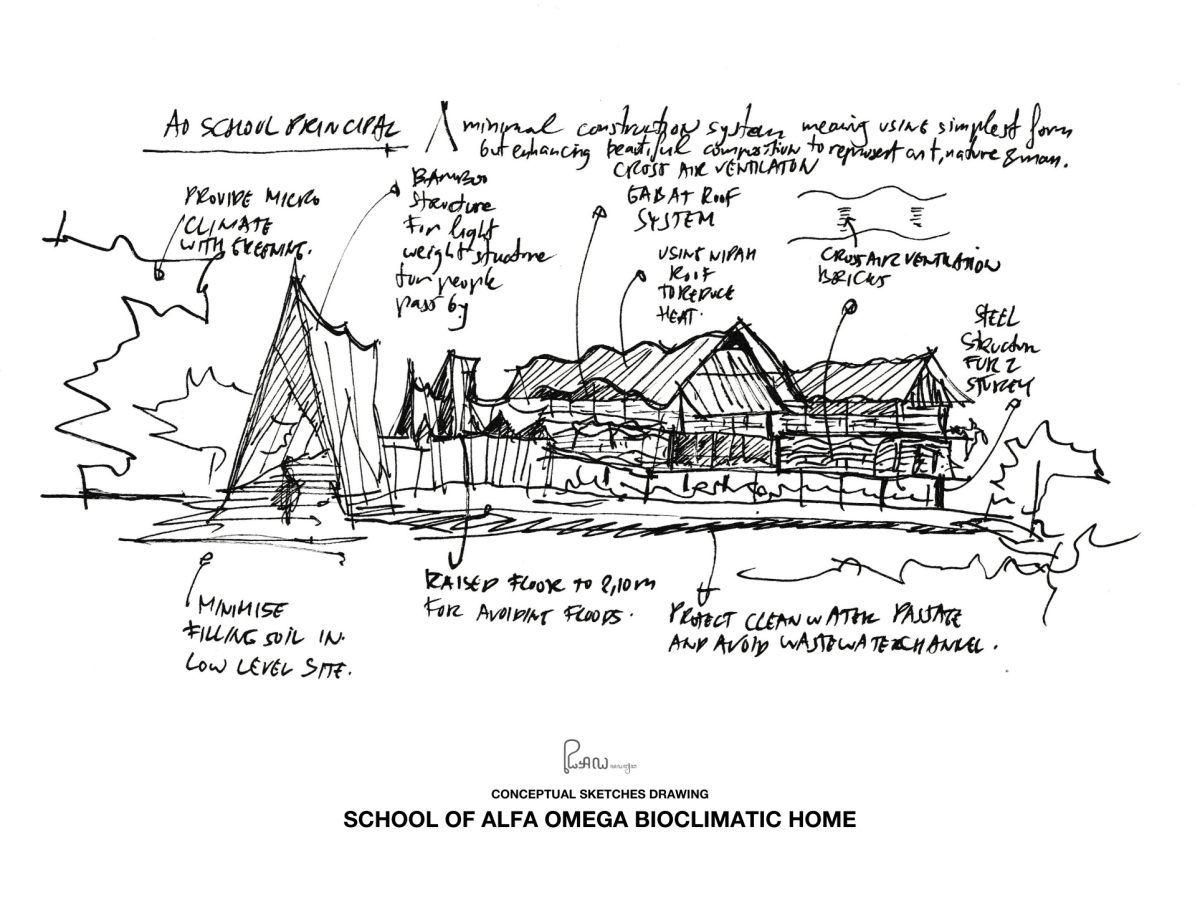 AO SCHOOL PRINCIPAL
minimal construction system meaning using simplest form
but enhancing beautiful composition to represent art, nature & man.
PROVIDE MICRO
CLIMATE
WITH GREENING.
BAMBOO
structure
for light
weight structure
for people
pass by
CROSS AIR VENTILATON
GABAT ROOF
SYSTEM
USING NIPAH
ROOF
TO REDUCE
HEAT.
CROSS AIR VENTILATION
BRICKS
STEEL
STRUCTURE
FUR 2
STOREY
MINIMISE
FILLING SOIL IN.
LOW LEVEL SITE.
RAISED FLOOR TO 2,10 m
FOR AVOIDING FLOODS.
PROJECT CLEAN WATER PASSAGE
AND AVOID WASTEWATER CHANNEL.
CONCEPTUAL SKETCHES DRAWING
SCHOOL OF ALFA OMEGA BIOCLIMATIC HOME